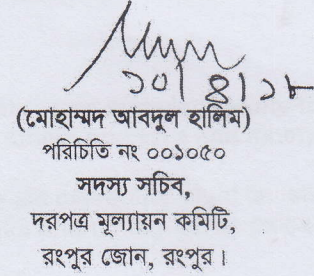 ১০/৪/১৮
(মোহাম্মদ আবদুল হালিম)
পরিচিতি নং ০০১০৫০
সদস্য সচিব,
দরপত্র মূল্যায়ন কমিটি,
রংপুর জোন, রংপুর।